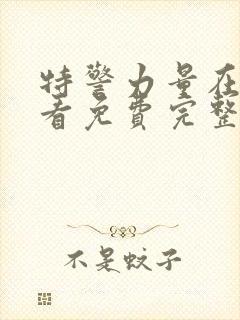 特警力量在
看免费完整
不是蚊子